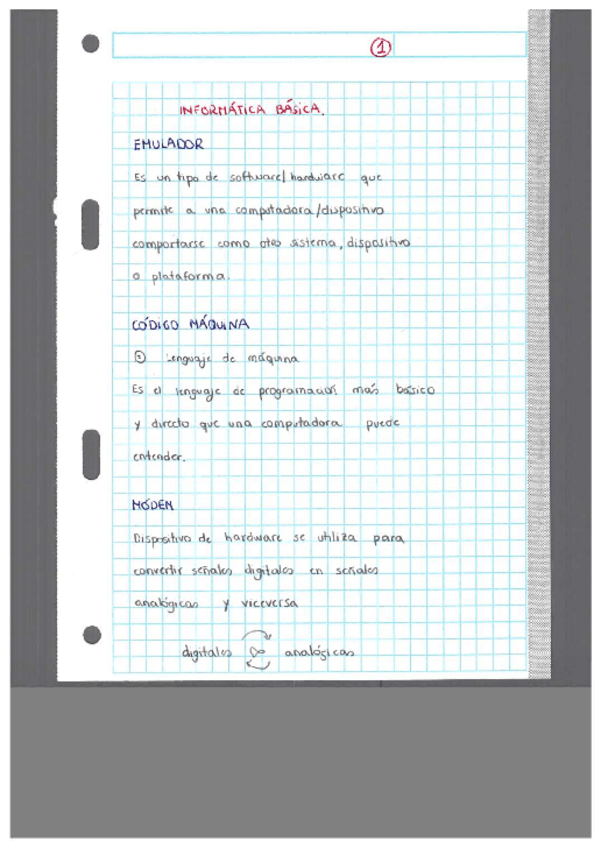 1
INFORMÁTICA BÁSICA.
EMULADOR
Es un tipo de software/hardware que
permite a una computadora/dispositivo
comportarse como otro sistema, dispositivo
o plataforma.
CÓDIGO MÁQUINA
Lenguaje de máquina
Es el lenguaje de programación más básico
y directo que una computadora puede
entender.
MÓDEM
Dispositivo de hardware se utiliza para
convertir señales digitales en señales
analógicas y viceversa
digitales analógicas